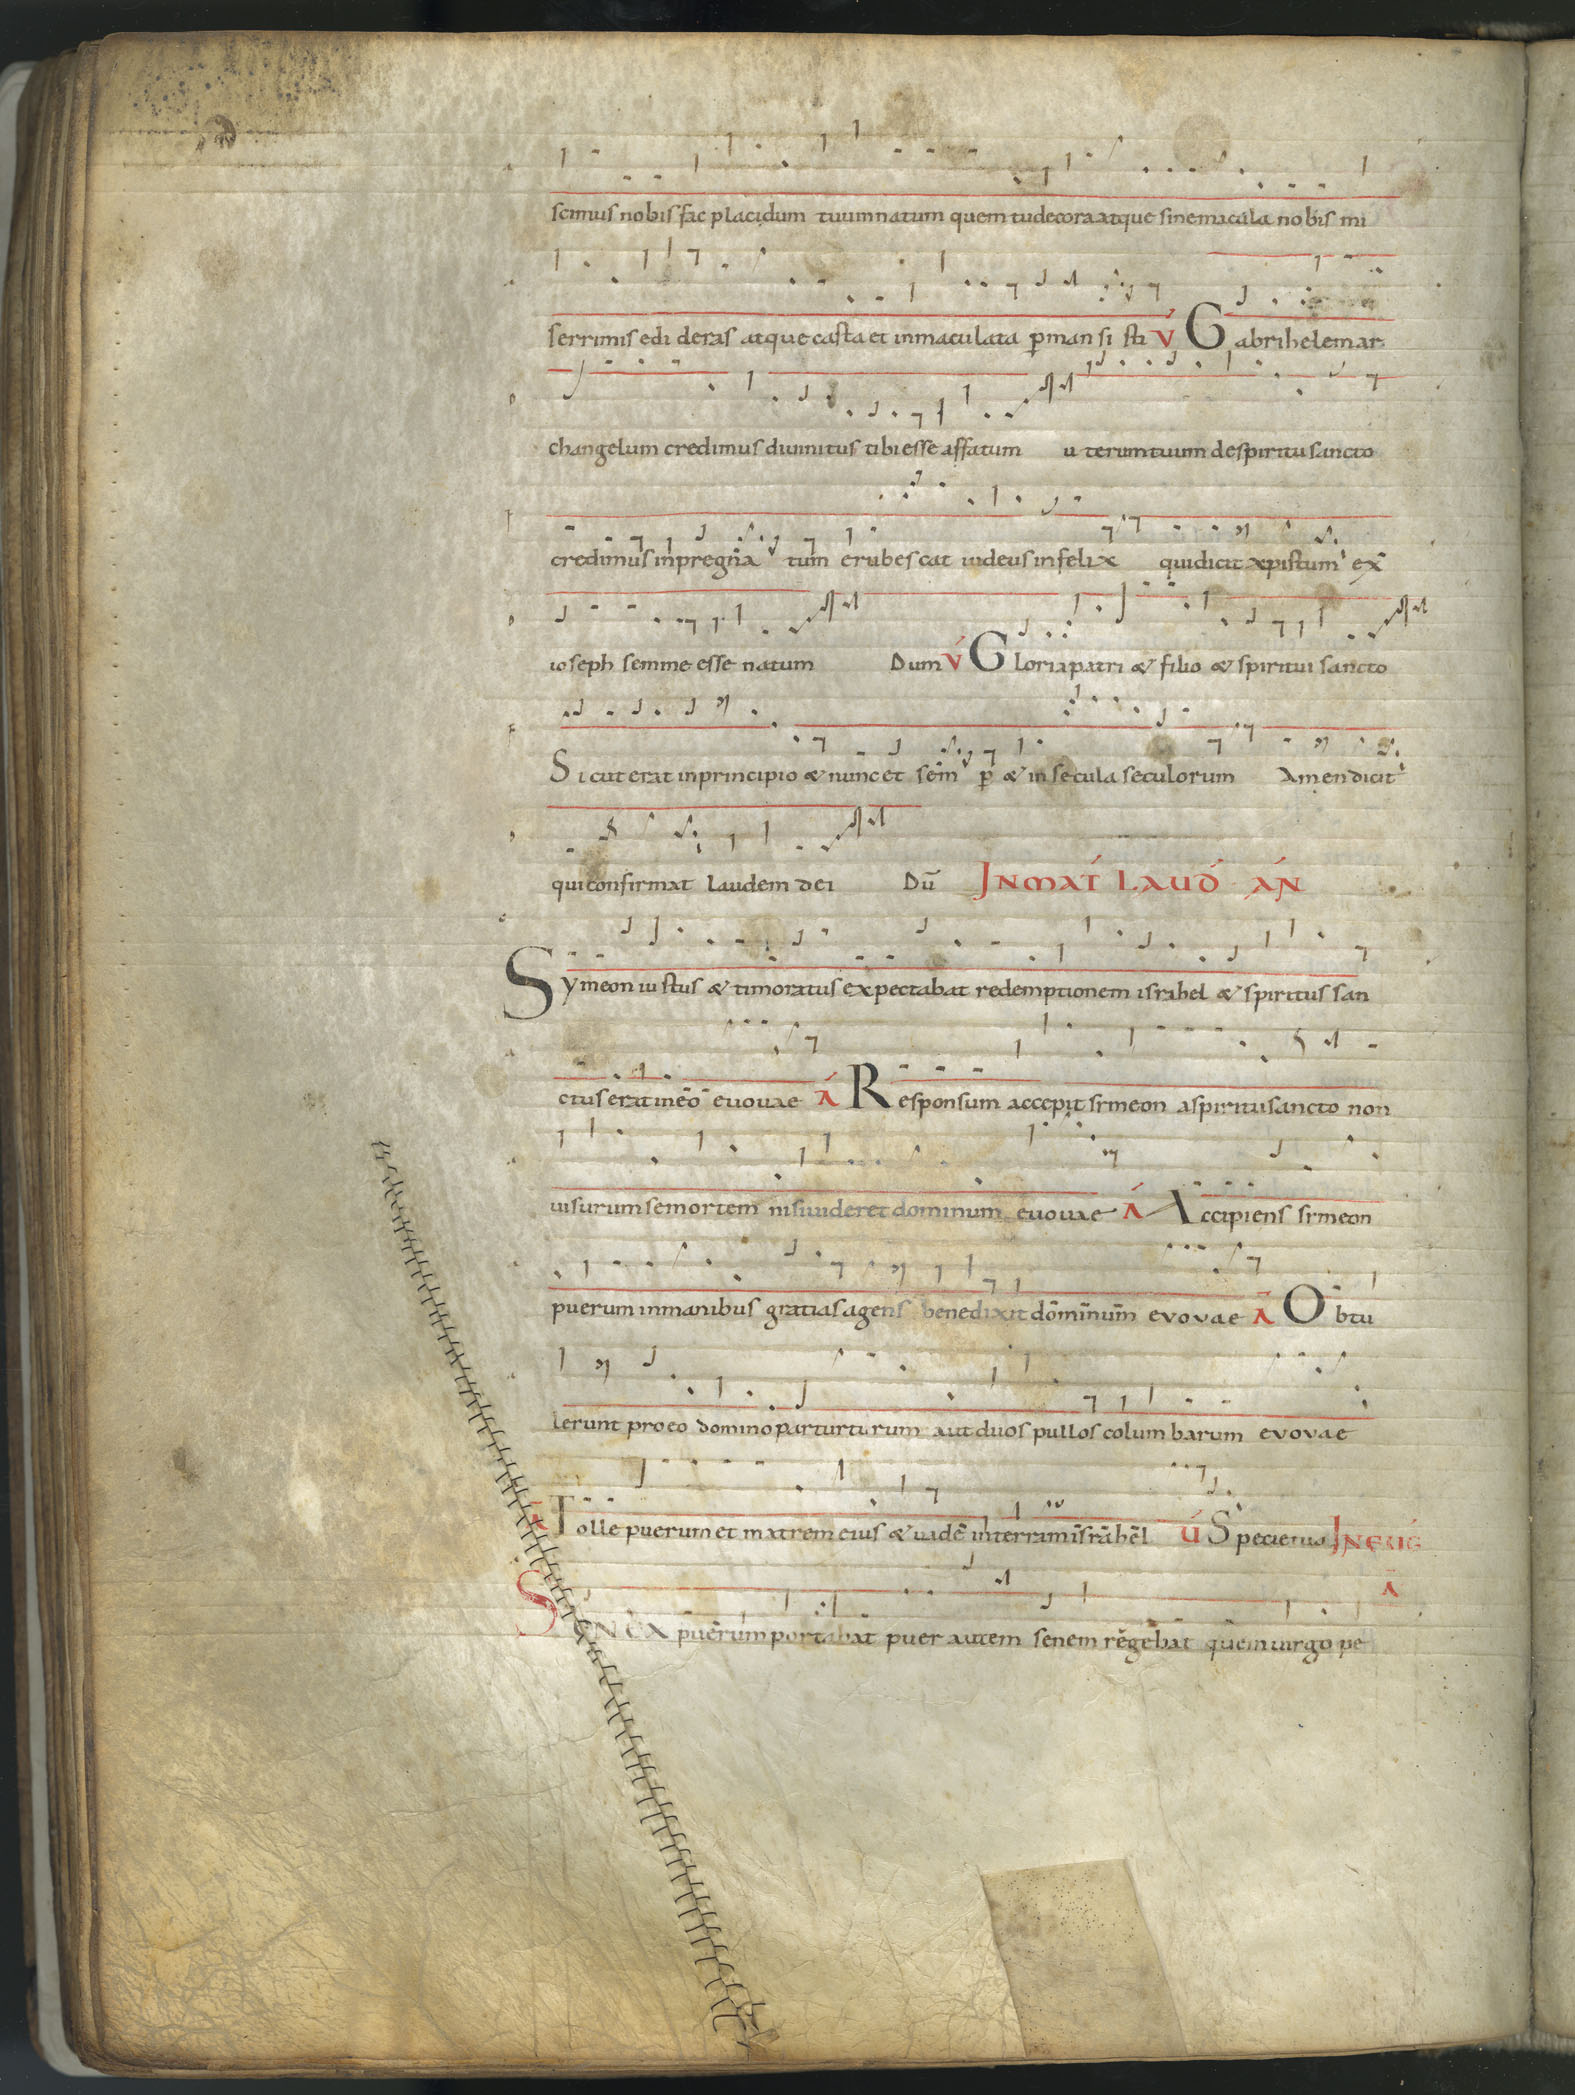 scimus nobis fac placidum tuum natum quem tu decora atque sine macula nobis mi
serrimis edi deras atque casta et inmaculata ꝑman si sti V Gabrihelem ar
changelum credimus diuinitus tibi esse affatum u terum tuum de spiritu sancto
credimus inpregna tum erubescat iudeus infelix qui dicit xpistum ex
ioseph semine esse natum Dum V Gloria patri & filio & spiritui sancto
Sicut erat in principio & nunc et sem ꝑ & in secula seculorum Amen dicit
qui confirmat laudem dei Dū IN MAT LAUD AN
Symeon iustus & timoratus expectabat redemptionem israhel & spiritus san
ctus erat in eo evovae A Responsum accepit symeon a spiritu sancto non
uisurum se mortem nisi uideret dominum euouae A Accipiens symeon
puerum in manibus gratias agens benedixit dominum evovae A Obtu
lerunt pro eo domino par turturum aut duos pullos columbarum evovae
A Tolle puerum et matrem eius & uade in terram israhel V Specie tua IN EUG
A
SENEX puerum portabat puer autem senem regebat quem uirgo pe